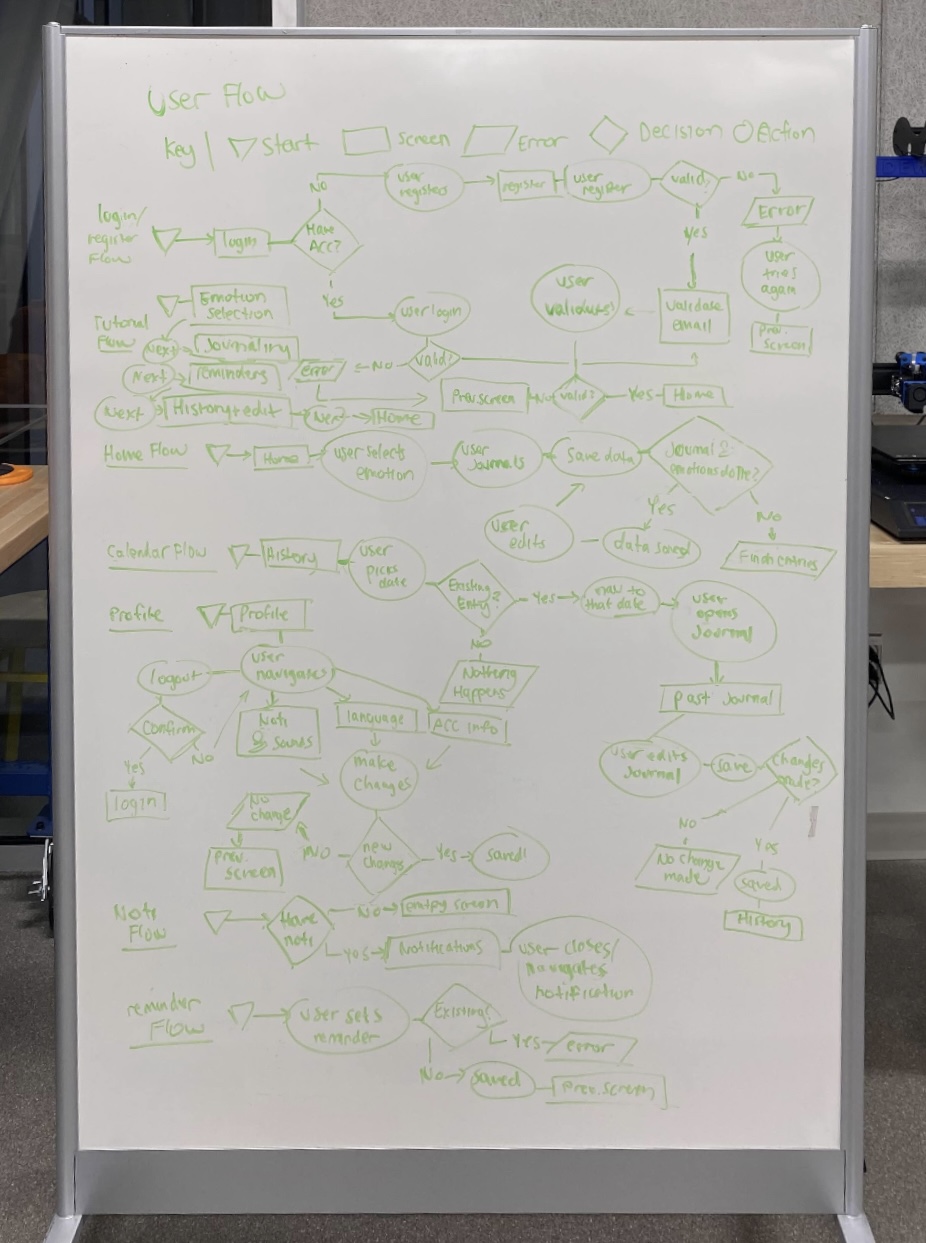 User Flow
Key | Start Screen Error Decision Action
login/
register
Flow
login
Have
ACC?
No
user
registers
register
user
register
valid?
No
Error
user
tries
again
Prev.
screen
Yes
validate
email
user
validates
valid?
No
Prev screen
Yes
Home
Yes
user login
valid?
No
error
Tutorial
Flow
Emotion
Selection
Next
Journaling
Next
reminders
Next
History+edit
Next
Home
Home Flow
Home
user selects
emotion
user
Journals
Save data
Journal &
emotions done?
Yes
data saved
user
edits
No
Finish entries
Calendar Flow
History
user
picks
date
Existing
Entry?
Yes
nav to
that date
user
opens
Journal
past Journal
user edits
Journal
save
Changes
made?
No
No change
made
Yes
saved
History
No
Nothing
Happens
Profile
Profile
user
navigates
logout
Confirm
Yes
login
No
Noti
& Sounds
language
ACC info
make
changes
new
changes
No
No
change
prev.
screen
Yes
saved!
Noti
Flow
Have
noti
No
empty screen
Yes
Notifications
user closes/
navigates
notification
reminder
Flow
user sets
reminder
Existing?
Yes
error
No
saved
Prev. screen